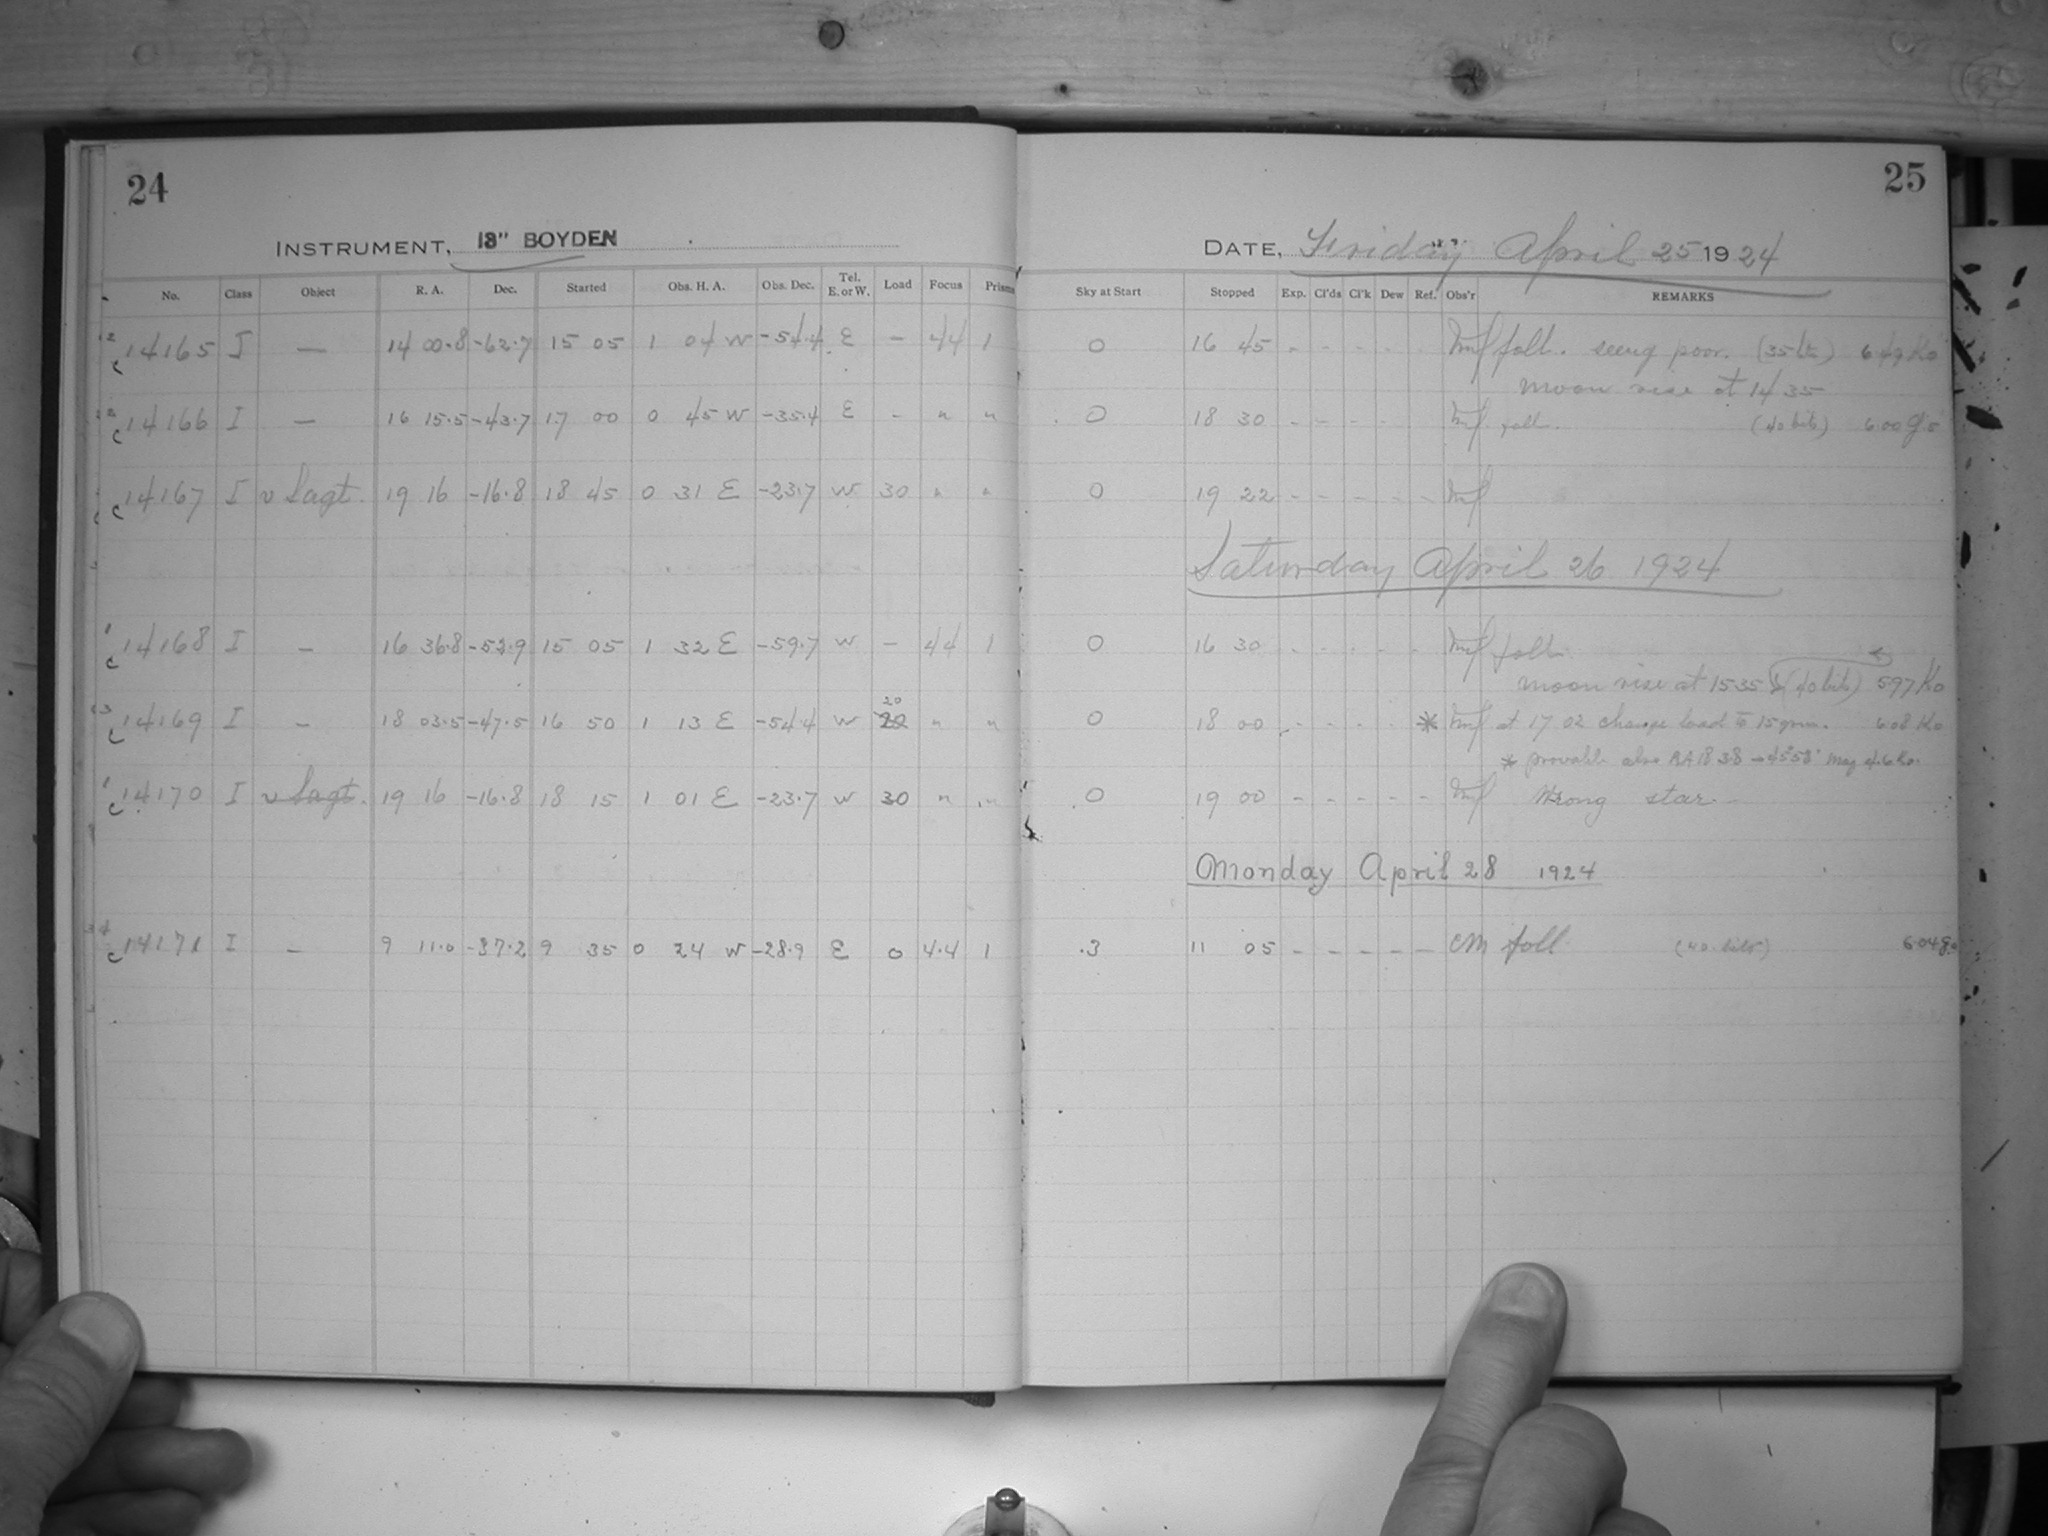 24
25
INSTRUMENT, 13" BOYDEN
DATE, Friday April 25 1924
No. Class Object R. A. Dec. Started Obs. H. A. Obs. Dec. Tel. E. or W. Load Focus Prisms Sky at Start Stopped Exp. Cl'ds Cl'k Dew Ref. Obs'r REMARKS
c 14165 I — 14 00.8 -62.7 15 05 1 04 W -54.4 E - 44 1 0 16 45 - - - - foll. seeing poor. 6.49 K0
moon rise at 14 35
c 14166 I — 16 15.5 -43.7 17 00 0 45 W -35.4 E - " " 0 18 30 - - - - foll. (40 bits) 6.00 G5
c 14167 I v Sagt. 19 16 -16.8 18 45 0 31 E -23.7 W 30 " " 0 19 22 - - - - -
Saturday April 26 1924
c 14168 I — 16 36.8 -52.9 15 05 1 32 E -59.7 W - 44 1 0 16 30 - - - - - foll
moon rise at 15 35 (40 bits) 597 K0
20
c 14169 I — 18 03.5 -47.5 16 50 1 13 E -54.4 W 22 " " 0 18 00 - - - - * at 17 02 change load to 15 grm. 6.08 K0
* provable also RA 18 38 -45°58' mag 4.6 K0.
c 14170 I v Sagt. 19 16 -16.8 18 15 1 01 E -23.7 W 30 " " 0 19 00 - - - - - Wrong star
Monday April 28 1924
c 14171 I — 9 11.0 -37.2 9 35 0 24 W -28.9 E 0 4.4 1 .3 11 05 - - - - - CM foll (40 bits) 6.04